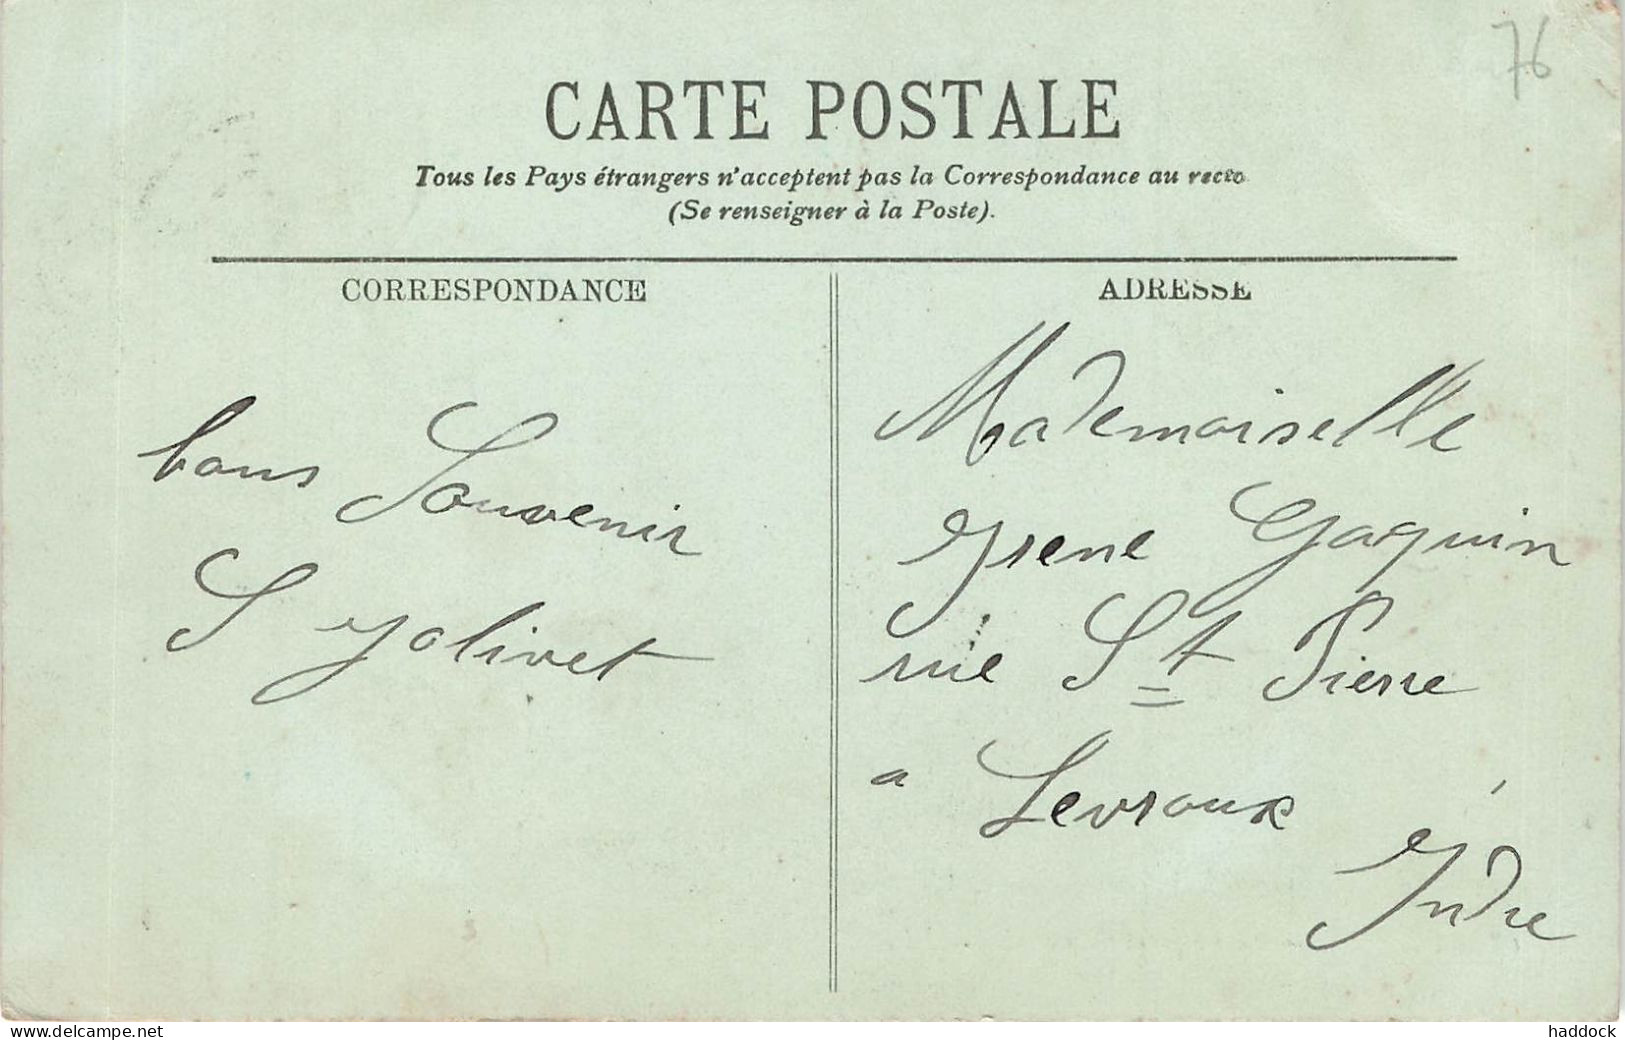 76
CARTE POSTALE
Tous les Pays étrangers n'acceptent pas la Correspondance au recto
(Se renseigner à la Poste).
CORRESPONDANCE
bons Souvenir
S Jolivet
ADRESSE
Mademoiselle
Irene Gaquin
rue St Pierre
a Levroux
Indre
www.delcampe.net
haddock